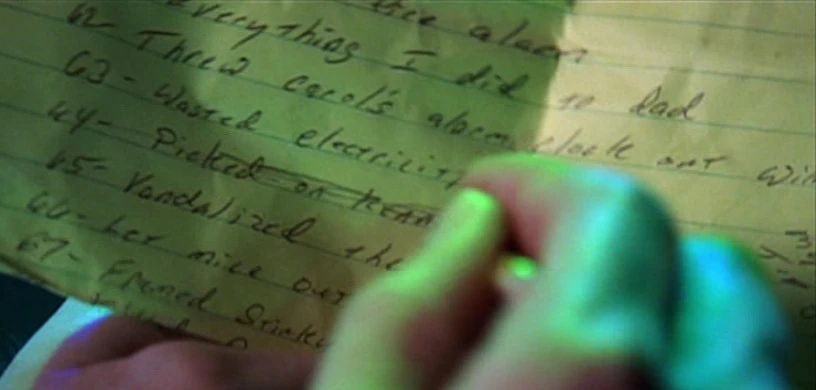 the alarm
everything I did to Dad
62- Threw Carol's alarm clock out win
63- Wasted electricity
64- Picked on
65- Vandalized the
66- Let mice out
67- Framed Sticky